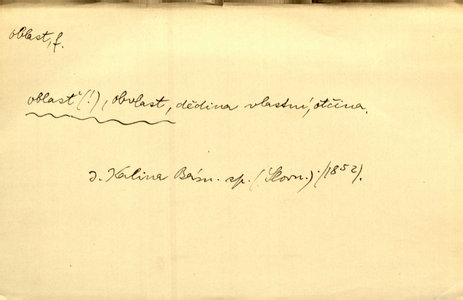 oblast, f.
oblasť (!), obvlast, dědina vlastní, otčina.
J. Kalina Básn. sp. (Slovn.) (1852).